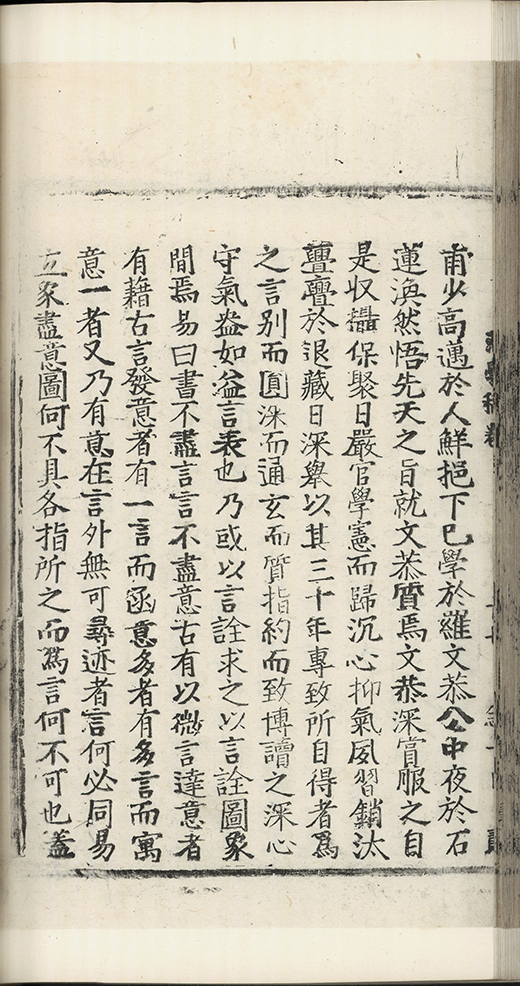 甫少高邁於人鮮挹下已學於羅文恭公中夜於石
蓮渙然悟先天之旨就文恭質焉文恭深賞服之自
是収攝保聚日嚴官學憲而歸沉心抑氣夙習銷汰
亹亹於退藏日深舉以其三十年專致所自得者爲
之言別而圓洙而通玄而質指約而致博讀之深心
守氣盎如溢言表也乃或以言詮求之以言詮圖象
間焉易曰書不盡言言不盡意古有以微言達意者
有藉古言發意者有一言而函意多者有多言而寓
意一者又乃有意在言外無可尋迹者言何必同易
立象盡意圖何不具各指所之而爲言何不可也蓋